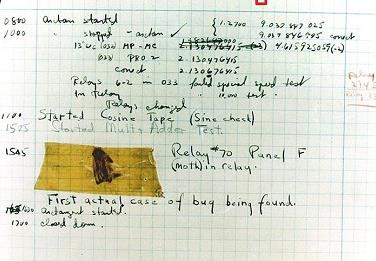 0800 Antan started { 1.2700 9.037 847 025
1000 " stopped - antan ✓ 9.037 846 995 correct
13"uc (032) MP-MC 2.130476415 4.615925059(-2)
(033) PRO 2 2.130476415
correct 2.130676415
Relays 6-2 in 033 failed special speed test
In Relay " 10.000 test.
Relays changed
1100 Started Cosine Tape (Sine check)
1525 Started Mult+Adder Test.
1545 Relay #70 Panel F
(moth) in relay.
First actual case of bug being found.
1630 antangent started.
1700 closed down.